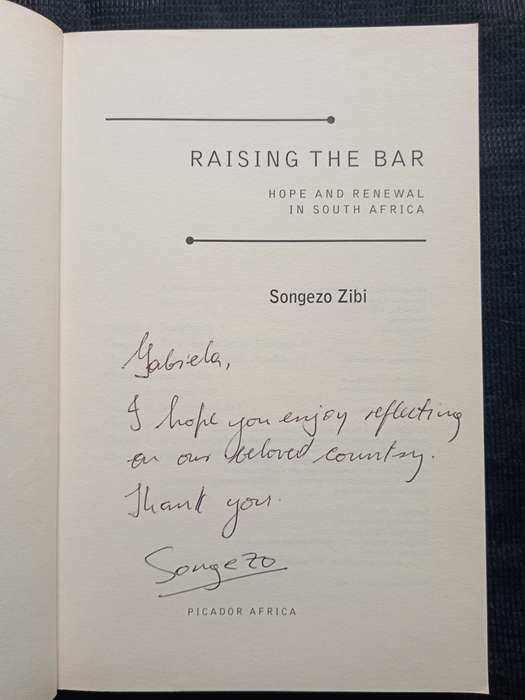 RAISING THE BAR
HOPE AND RENEWAL
IN SOUTH AFRICA
Songezo Zibi
Gabriela,
I hope you enjoy reflecting
on our beloved country.
Thank you.
Songezo
PICADOR AFRICA